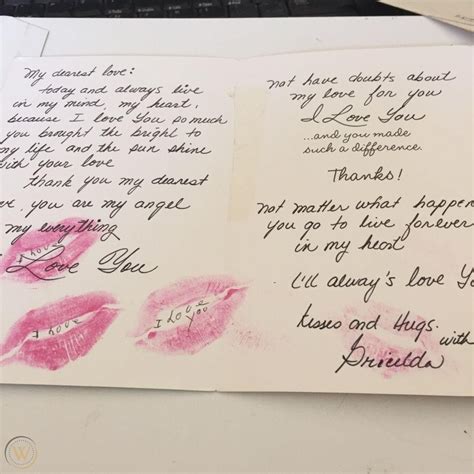 My dearest love:
today and always live
in my mind, my heart,
because I love You so much
you brought the bright to
my life and the sun shine
with your love
thank you my dearest
you are my angel
my everything
I Love You
I Love
You
not have doubts about
my love for you
I Love You
...and you made
such a difference.
Thanks!
not matter what happen
you go to live forever
in my heart
I'll alway's love Yo
kisses and Hugs.
with
Gricelda
W